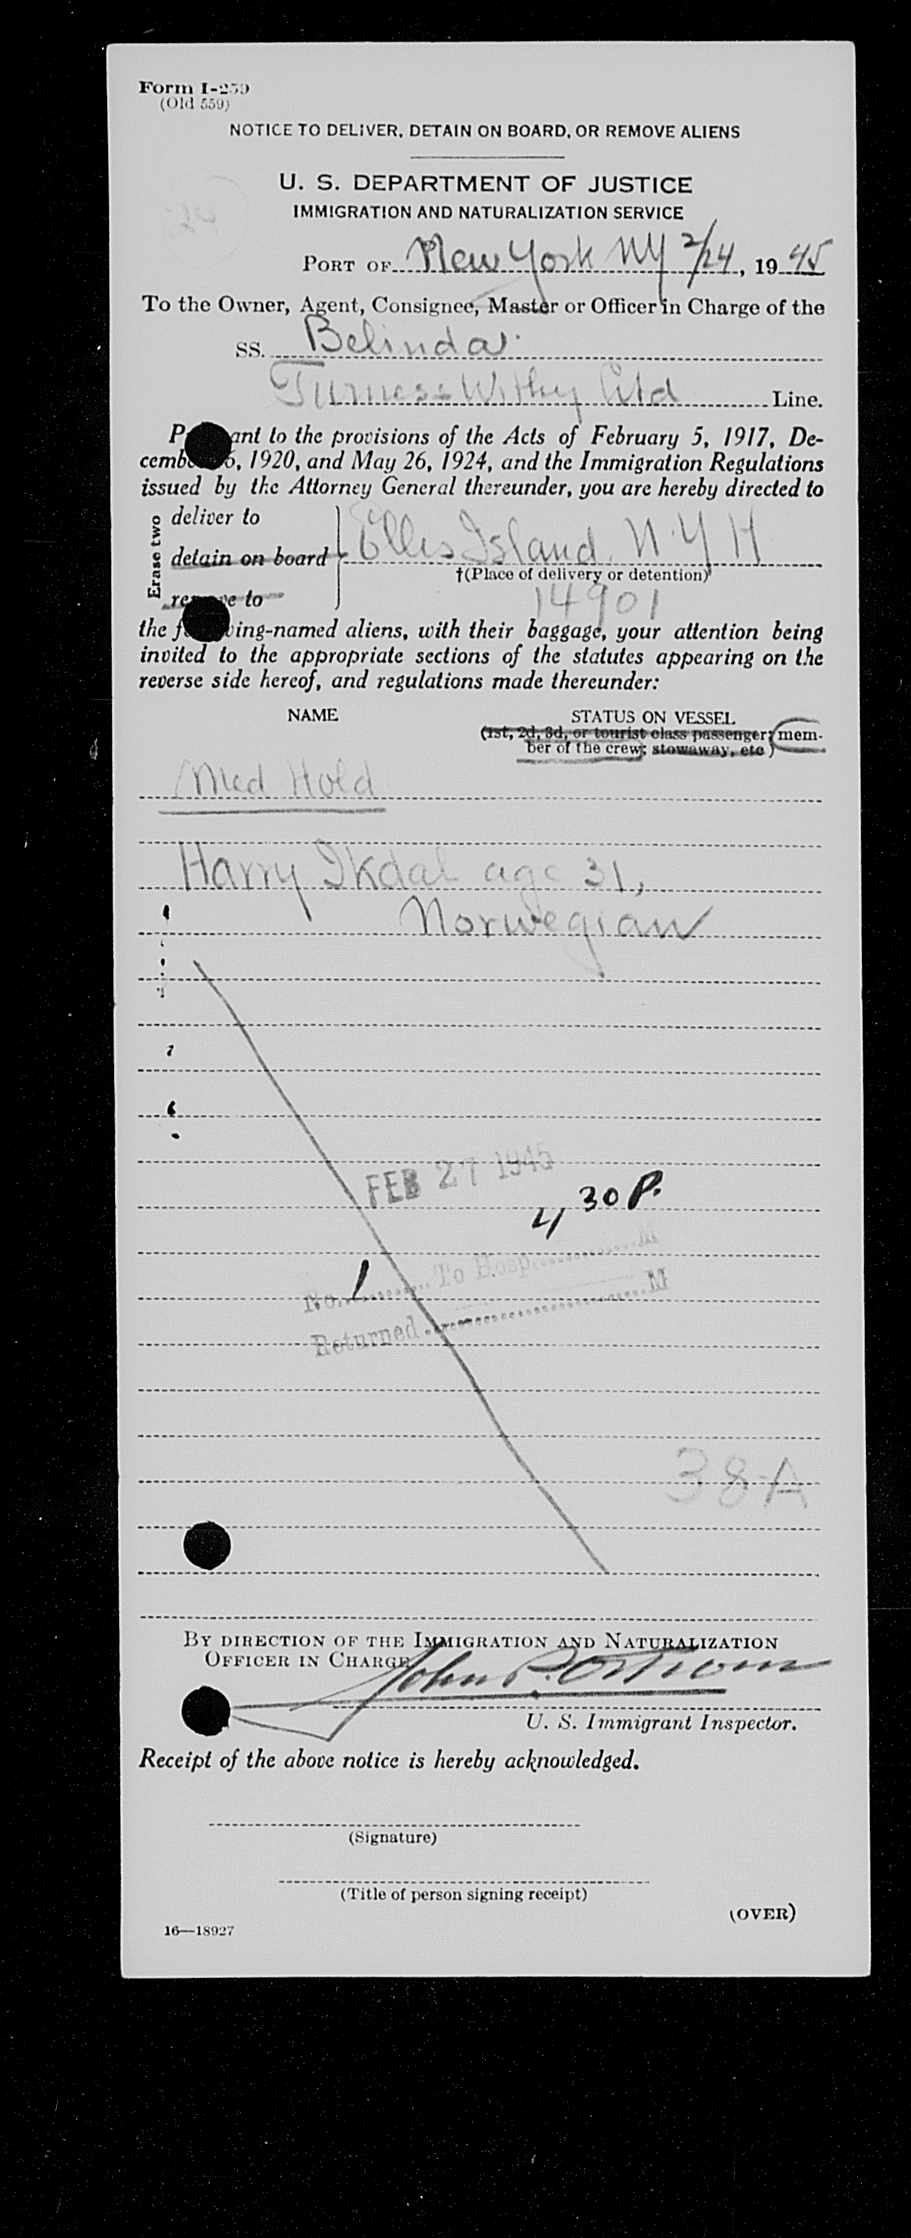 Form I-259
(Old 559)
NOTICE TO DELIVER, DETAIN ON BOARD, OR REMOVE ALIENS
U. S. DEPARTMENT OF JUSTICE
IMMIGRATION AND NATURALIZATION SERVICE
24
PORT OF New York NY 2/24, 1945
To the Owner, Agent, Consignee, Master or Officer in Charge of the
SS. Belinda
Furness Withy Ltd Line.
P ant to the provisions of the Acts of February 5, 1917, De-
cemb 6, 1920, and May 26, 1924, and the Immigration Regulations
issued by the Attorney General thereunder, you are hereby directed to
Erase two
deliver to
detain on board Ellis Island. N.Y H
†(Place of delivery or detention)
re e to 14901
the f ing-named aliens, with their baggage, your attention being
invited to the appropriate sections of the statutes appearing on the
reverse side hereof, and regulations made thereunder:
NAME STATUS ON VESSEL
(1st, 2d, 3d, or tourist class passenger; mem-
ber of the crew; stowaway, etc.)
Med Hold
Harry Ikdal age 31,
Norwegian
FEB 27 1945
4 30 P.
No. 1 To Hosp. M
Returned M
38-A
BY DIRECTION OF THE IMMIGRATION AND NATURALIZATION
OFFICER IN CHARGE
John P. Ostrom
U. S. Immigrant Inspector.
Receipt of the above notice is hereby acknowledged.
(Signature)
(Title of person signing receipt)
(OVER)
16—18927